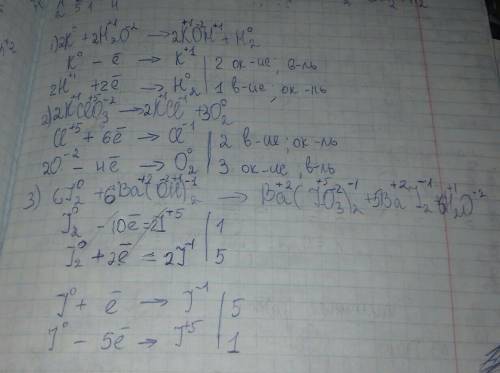 1) 2K⁰ + 2H₂⁺¹O⁻² → 2K⁺¹O⁻²H⁺¹ + H₂⁰
K⁰ – ē → K⁺¹ | 2 ок-ие, в-ль
2H⁺¹ + 2ē → H₂⁰ | 1 в-ие, ок-ль
2) 2K⁺¹Cl⁺⁵O₃⁻² → 2K⁺¹Cl⁻¹ + 3O₂⁰
Cl⁺⁵ + 6ē → Cl⁻¹ | 2 в-ие; ок-ль
2O⁻² – 4ē → O₂⁰ | 3 ок-ие, в-ль
3) 6J₂⁰ + 6Ba⁺²(OH)₂⁻¹ → Ba⁺²(JO₃⁻²)₂⁻¹ + 5Ba⁺²J₂⁻¹ + 6H₂⁺¹O⁻²
J₂⁰ – 10ē = 2J⁺⁵ | 1
J₂⁰ + 2ē = 2J⁻¹ | 5
J⁰ + ē → J⁻¹ | 5
J⁰ – 5ē → J⁺⁵ | 1